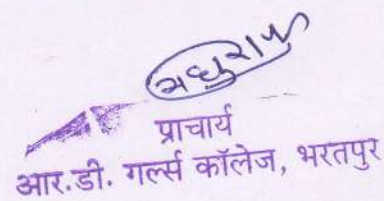 प्राचार्य
आर.डी. गर्ल्स कॉलेज, भरतपुर